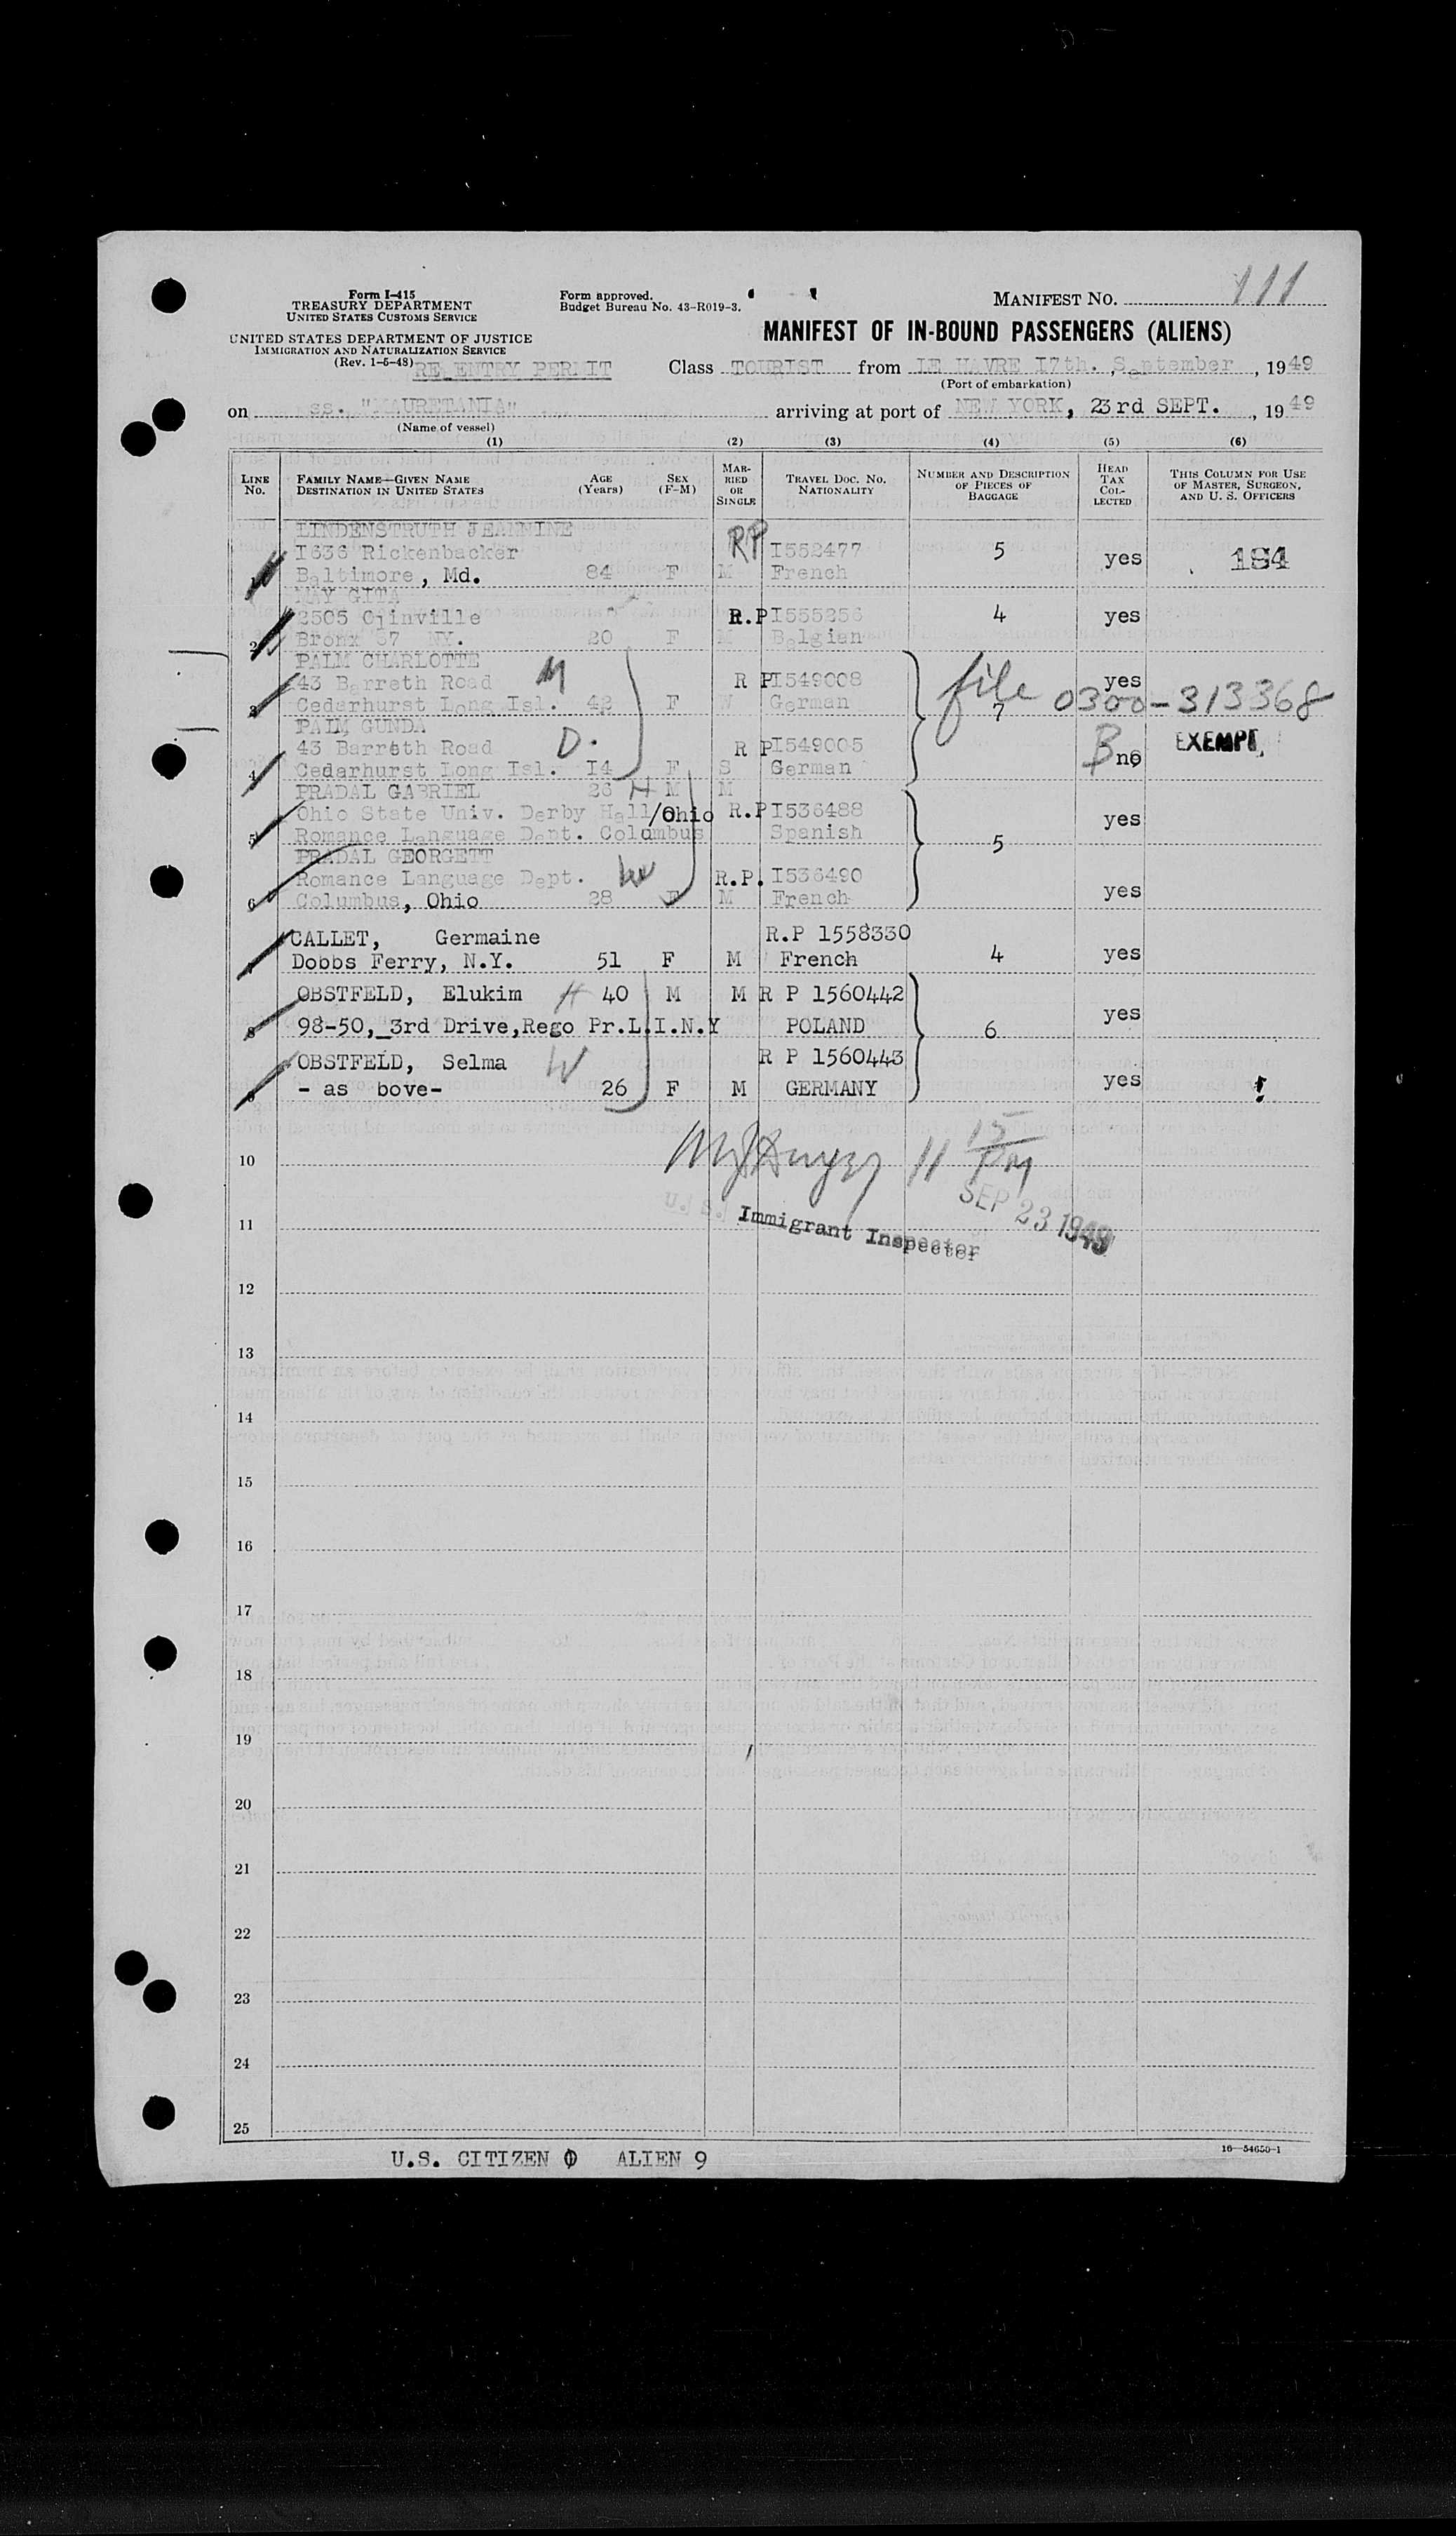 Form I-415
TREASURY DEPARTMENT
UNITED STATES CUSTOMS SERVICE
UNITED STATES DEPARTMENT OF JUSTICE
IMMIGRATION AND NATURALIZATION SERVICE
(Rev. 1-5-48)
RE ENTRY PERMIT
Form approved.
Budget Bureau No. 43-R019-3.
MANIFEST NO. 111
MANIFEST OF IN-BOUND PASSENGERS (ALIENS)
Class TOURIST from LE HAVRE I7th. September, 1949
(Port of embarkation)
on ss. "MAURETANIA" arriving at port of NEW YORK, 23rd SEPT., 1949
(Name of vessel)
(1) (2) (3) (4) (5) (6)
LINE No. FAMILY NAME—GIVEN NAME DESTINATION IN UNITED STATES AGE (Years) SEX (F-M) MARRIED OR SINGLE TRAVEL DOC. NO. NATIONALITY NUMBER AND DESCRIPTION OF PIECES OF BAGGAGE HEAD TAX COLLECTED THIS COLUMN FOR USE OF MASTER, SURGEON, AND U. S. OFFICERS
LINDENSTRUTH JEANNINE
I636 Rickenbacker RP I552477 5 yes 184
1 Baltimore, Md. 84 F M French
MAY GITA
2505 Olinville R.P I555256 4 yes
2 Bronx 67 NY. 20 F M Belgian
PALM CHARLOTTE
43 Barreth Road M R P I549008 yes file 0300-313368
3 Cedarhurst Long Isl. 42 F W German 7
PALM GUNDA
43 Barreth Road D. R P I549005 B no EXEMPT
4 Cedarhurst Long Isl. I4 F S German
PRADAL GABRIEL 26 H M M
Ohio State Univ. Derby Hall/Ohio R.P I536488 yes
5 Romance Language Dept. Columbus Spanish 5
PRADAL GEORGETT
Romance Language Dept. W R.P. I536490 yes
6 Columbus, Ohio 28 F M French
CALLET, Germaine R.P 1558330
7 Dobbs Ferry, N.Y. 51 F M French 4 yes
OBSTFELD, Elukim H 40 M M R P 1560442
8 98-50,_3rd Drive,Rego Pr.L.I.N.Y POLAND 6 yes
OBSTFELD, Selma W R P 1560443
9 - as bove- 26 F M GERMANY yes
10
11 15 PM
SEP 23 1949
U. S. Immigrant Inspector
11
12
13
14
15
16
17
18
19
20
21
22
23
24
25
U.S. CITIZEN 0 ALIEN 9
16—54650-1